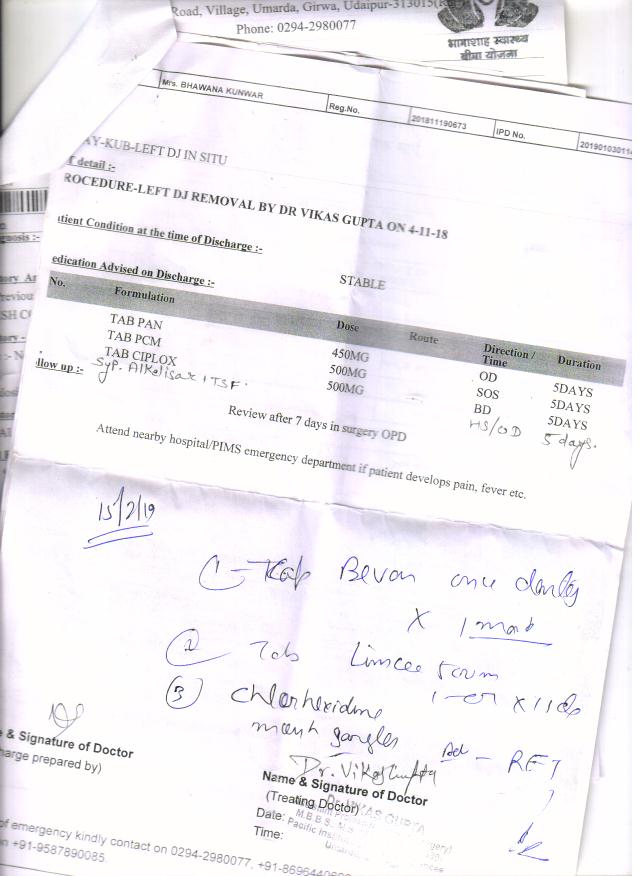 Road, Village, Umarda, Girwa, Udaipur-313015(
Phone: 0294-2980077
भामाशाह स्वास्थ्य
बीमा योजना
Mrs. BHAWANA KUNWAR Reg.No. 201811190673 IPD No. 2019010301
AY-KUB-LEFT DJ IN SITU
f detail :-
ROCEDURE-LEFT DJ REMOVAL BY DR VIKAS GUPTA ON 4-11-18
atient Condition at the time of Discharge :-
STABLE
edication Advised on Discharge :-
No. Formulation Dose Route Direction / Time Duration
TAB PAN 450MG OD 5DAYS
TAB PCM 500MG SOS 5DAYS
TAB CIPLOX 500MG BD 5DAYS
Syp. Alkalisax 1TSF. HS/OD 5 days.
llow up :-
Review after 7 days in surgery OPD
Attend nearby hospital/PIMS emergency department if patient develops pain, fever etc.
15/2/19
1 Cap Bevon once daily
X 1 month
2 Tab Limcee
3 Chlorhexidine
mouth gargles
Dr. Vikas Gupta
e & Signature of Doctor
harge prepared by)
Name & Signature of Doctor
(Treating Doctor)
Date:
Time:
Dr. VIKAS GUPTA
M.B.B.S., M.S.
of emergency kindly contact on 0294-2980077, +91-8696440
n +91-9587890085.